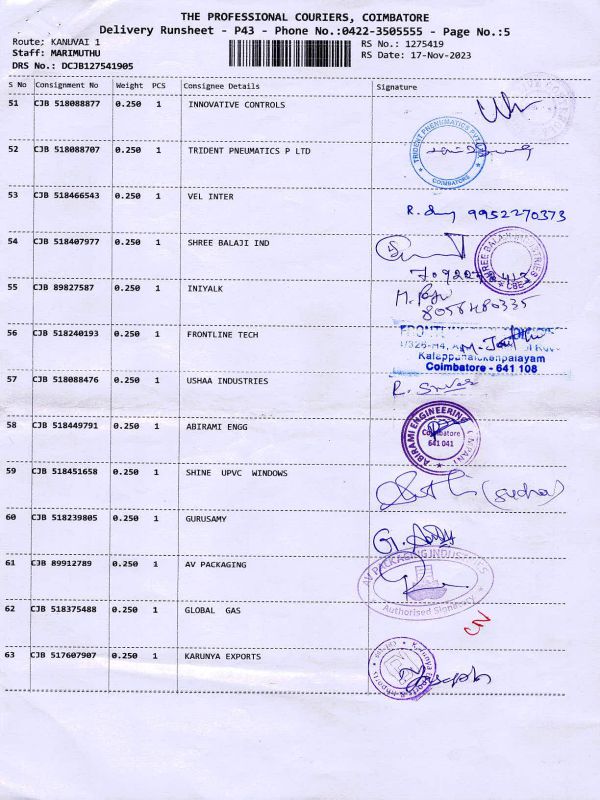 THE PROFESSIONAL COURIERS, COIMBATORE
Delivery Runsheet - P43 - Phone No.:0422-3505555 - Page No.:5
Route; KANUVAI 1
RS No.: 1275419
Staff: MARIMUTHU
RS Date: 17-Nov-2023
DRS No.: DCJB127541905
S No Consignment No Weight PCS Consignee Details Signature
51 CJB 518088877 0.250 1 INNOVATIVE CONTROLS
52 CJB 518088707 0.250 1 TRIDENT PNEUMATICS P LTD
TRIDENT PNEUMATICS PVT LTD
COIMBATORE
53 CJB 518466543 0.250 1 VEL INTER
9952270373
54 CJB 518407977 0.250 1 SHREE BALAJI IND
SHREE BALAJI INDUSTRIES
CBE
55 CJB 89827587 0.250 1 INIYALK
8056480335
56 CJB 518240193 0.250 1 FRONTLINE TECH
Coimbatore - 641 108
57 CJB 518088476 0.250 1 USHAA INDUSTRIES
58 CJB 518449791 0.250 1 ABIRAMI ENGG
ABIRAMI ENGINEERING
Coimbatore
641 041
59 CJB 518451658 0.250 1 SHINE UPVC WINDOWS
60 CJB 518239805 0.250 1 GURUSAMY
61 CJB 89912789 0.250 1 AV PACKAGING
AV PACKAGING INDUSTRIES
Authorised Signatory
62 CJB 518375488 0.250 1 GLOBAL GAS
CN
63 CJB 517607907 0.250 1 KARUNYA EXPORTS